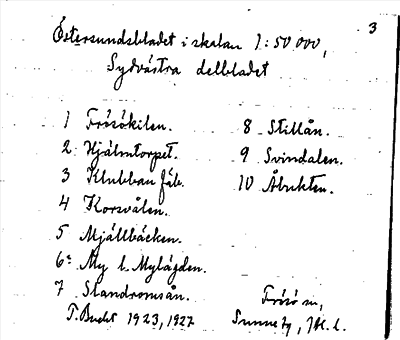 3
Östersundsbladet i skalan 1:50 000,
Sydvästra delbladet
1 Frösökilen.
2 Hjälmtorpet.
3 Klubban fäb.
4 Korsvålen.
5 Mjällbäcken.
6 My l. Mylägden.
7 Slandromsån.
8 Stillån.
9 Svindalen.
10 Åbukten.
T. Bucht 1923, 1927
Frösö sn,
Sunne tg, Jtl. l.